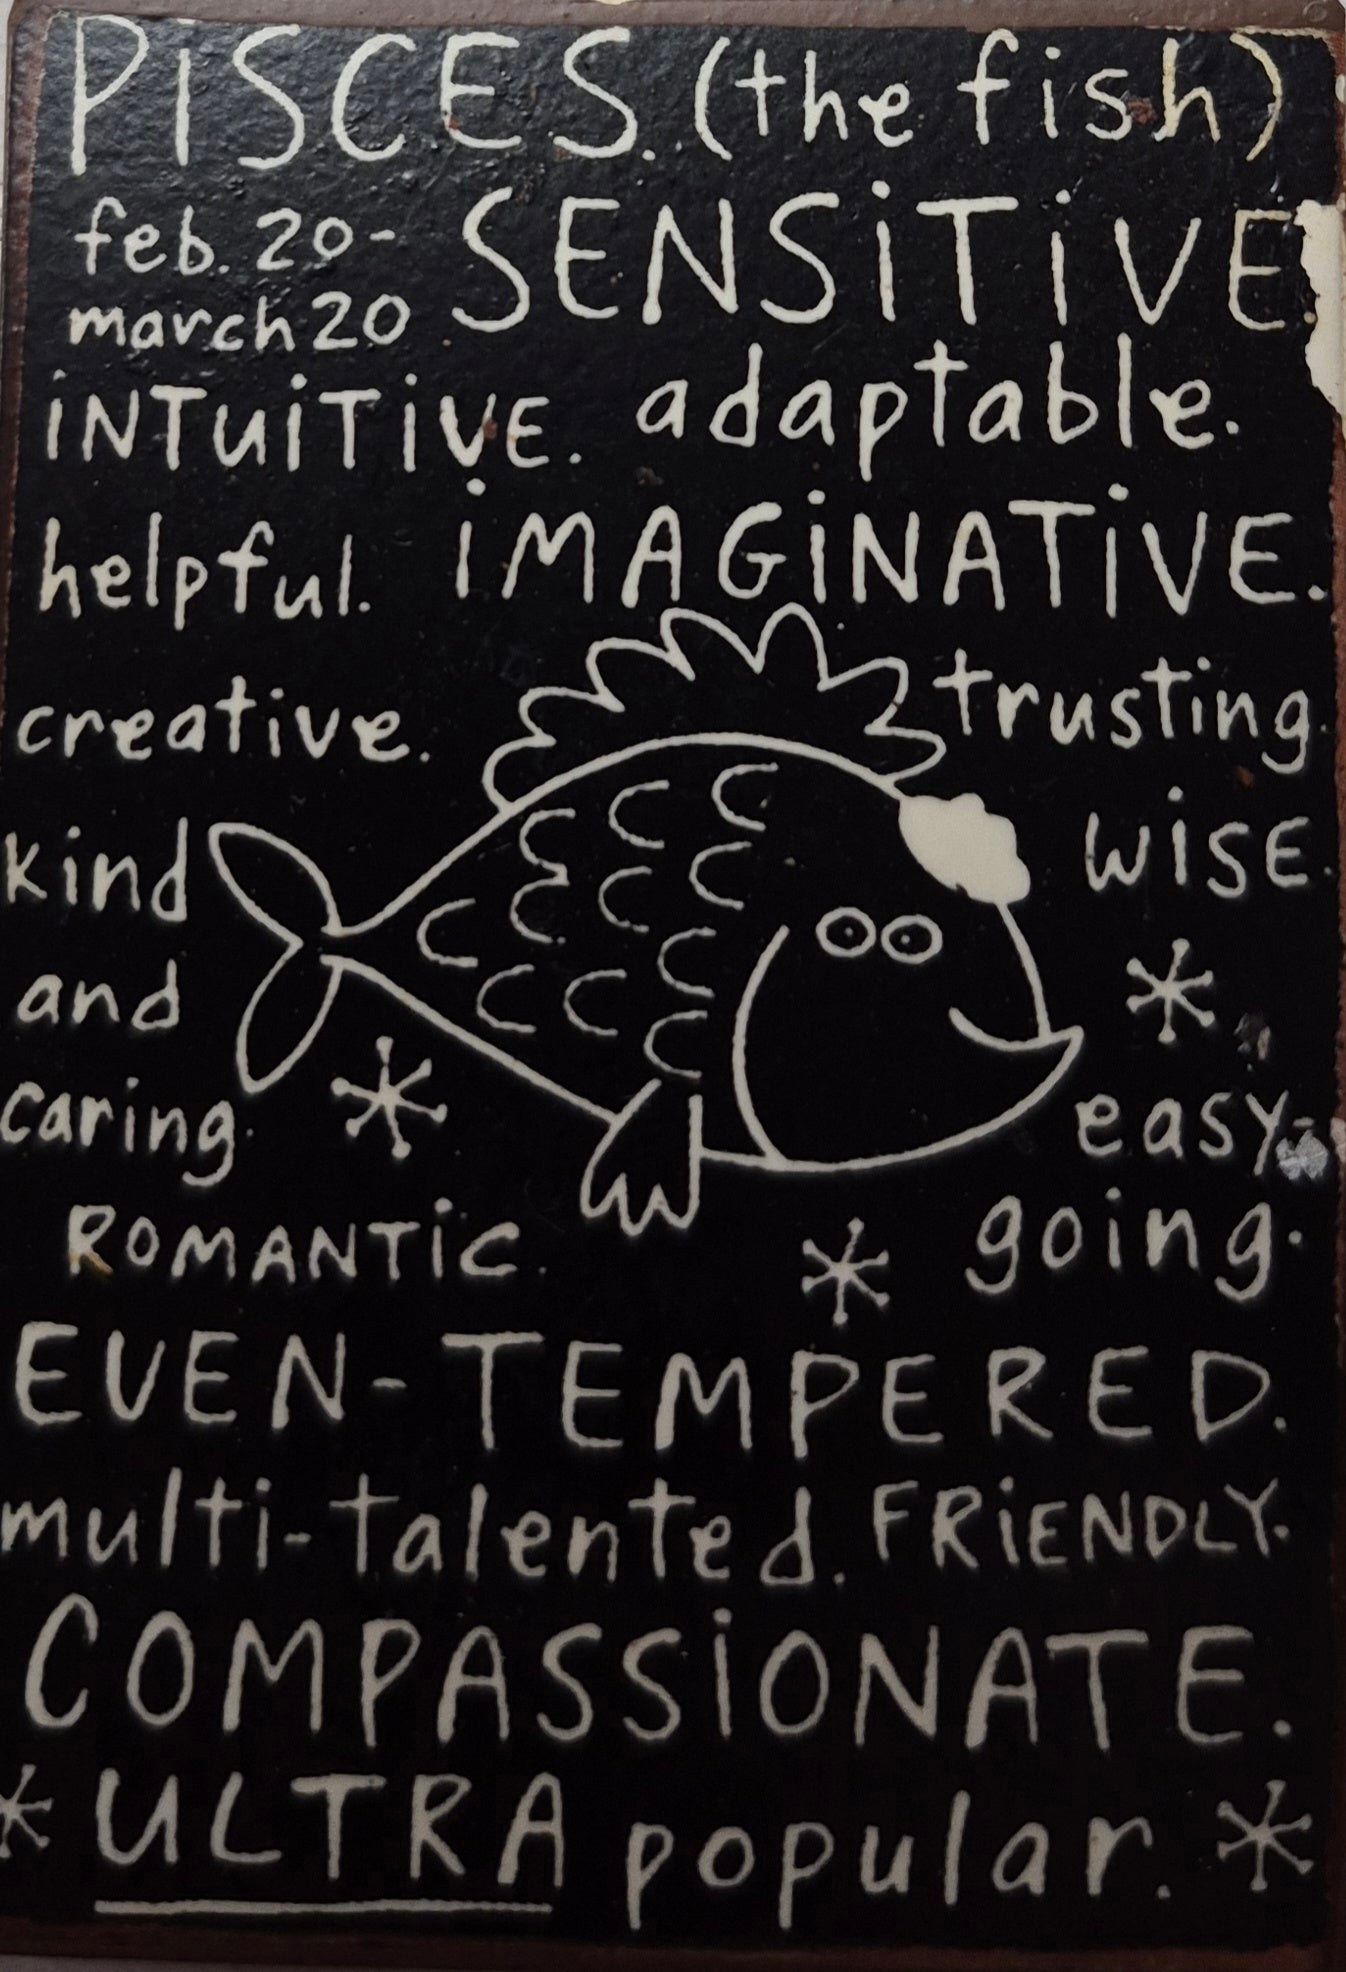 PiSCES. (the fish)
feb. 20- SENSiTiVE.
march 20
iNTuiTiVE. adaptable.
helpful. iMAGiNATiVE.
creative. trusting.
kind WiSE.
and
caring. easy-
ROMANTiC. going.
EVEN-TEMPERED.
multi-talented. FRiENDLY.
COMPASSiONATE.
* ULTRA popular. *